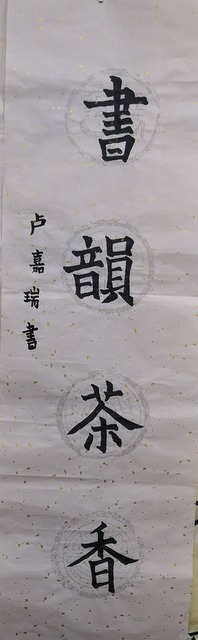 書韻茶香
卢嘉瑞書